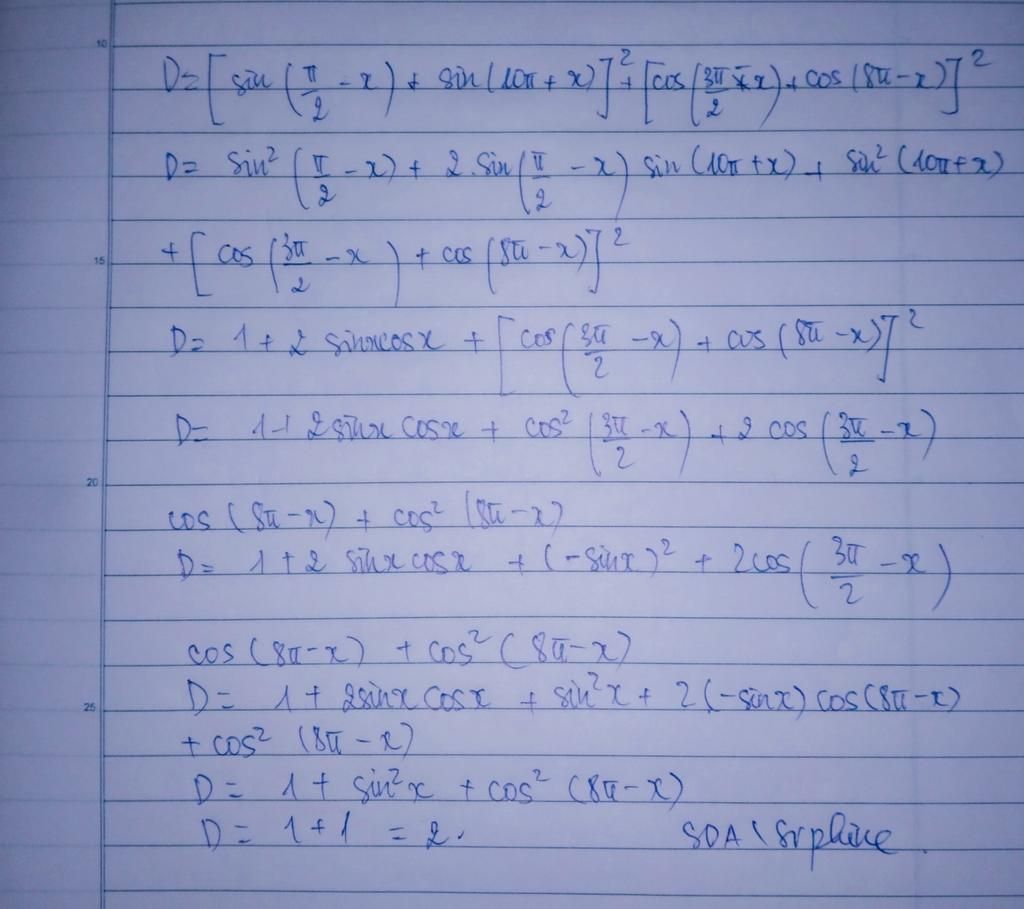 10
D= [sin (π/2 - x) + sin (10π + x)]² + [cos (3π/2 - x) + cos (8π - x)]²
D= sin² (π/2 - x) + 2.sin (π/2 - x) sin (10π + x) + sin² (10π + x)
15
+ [cos (3π/2 - x) + cos (8π - x)]²
D= 1 + 2 sinxcosx + [cos (3π/2 - x) + cos (8π - x)]²
D= 1 + 2 sinx cosx + cos² (3π/2 - x) + 2 cos (3π/2 - x)
20
cos (8π - x) + cos² (8π - x)
D= 1 + 2 sinx cosx + (-sinx)² + 2cos (3π/2 - x)
cos (8π - x) + cos² (8π - x)
25
D= 1 + 2sinx cosx + sin²x + 2 (-sinx) cos (8π - x)
+ cos² (8π - x)
D= 1 + sin²x + cos² (8π - x)
D= 1 + 1 = 2.